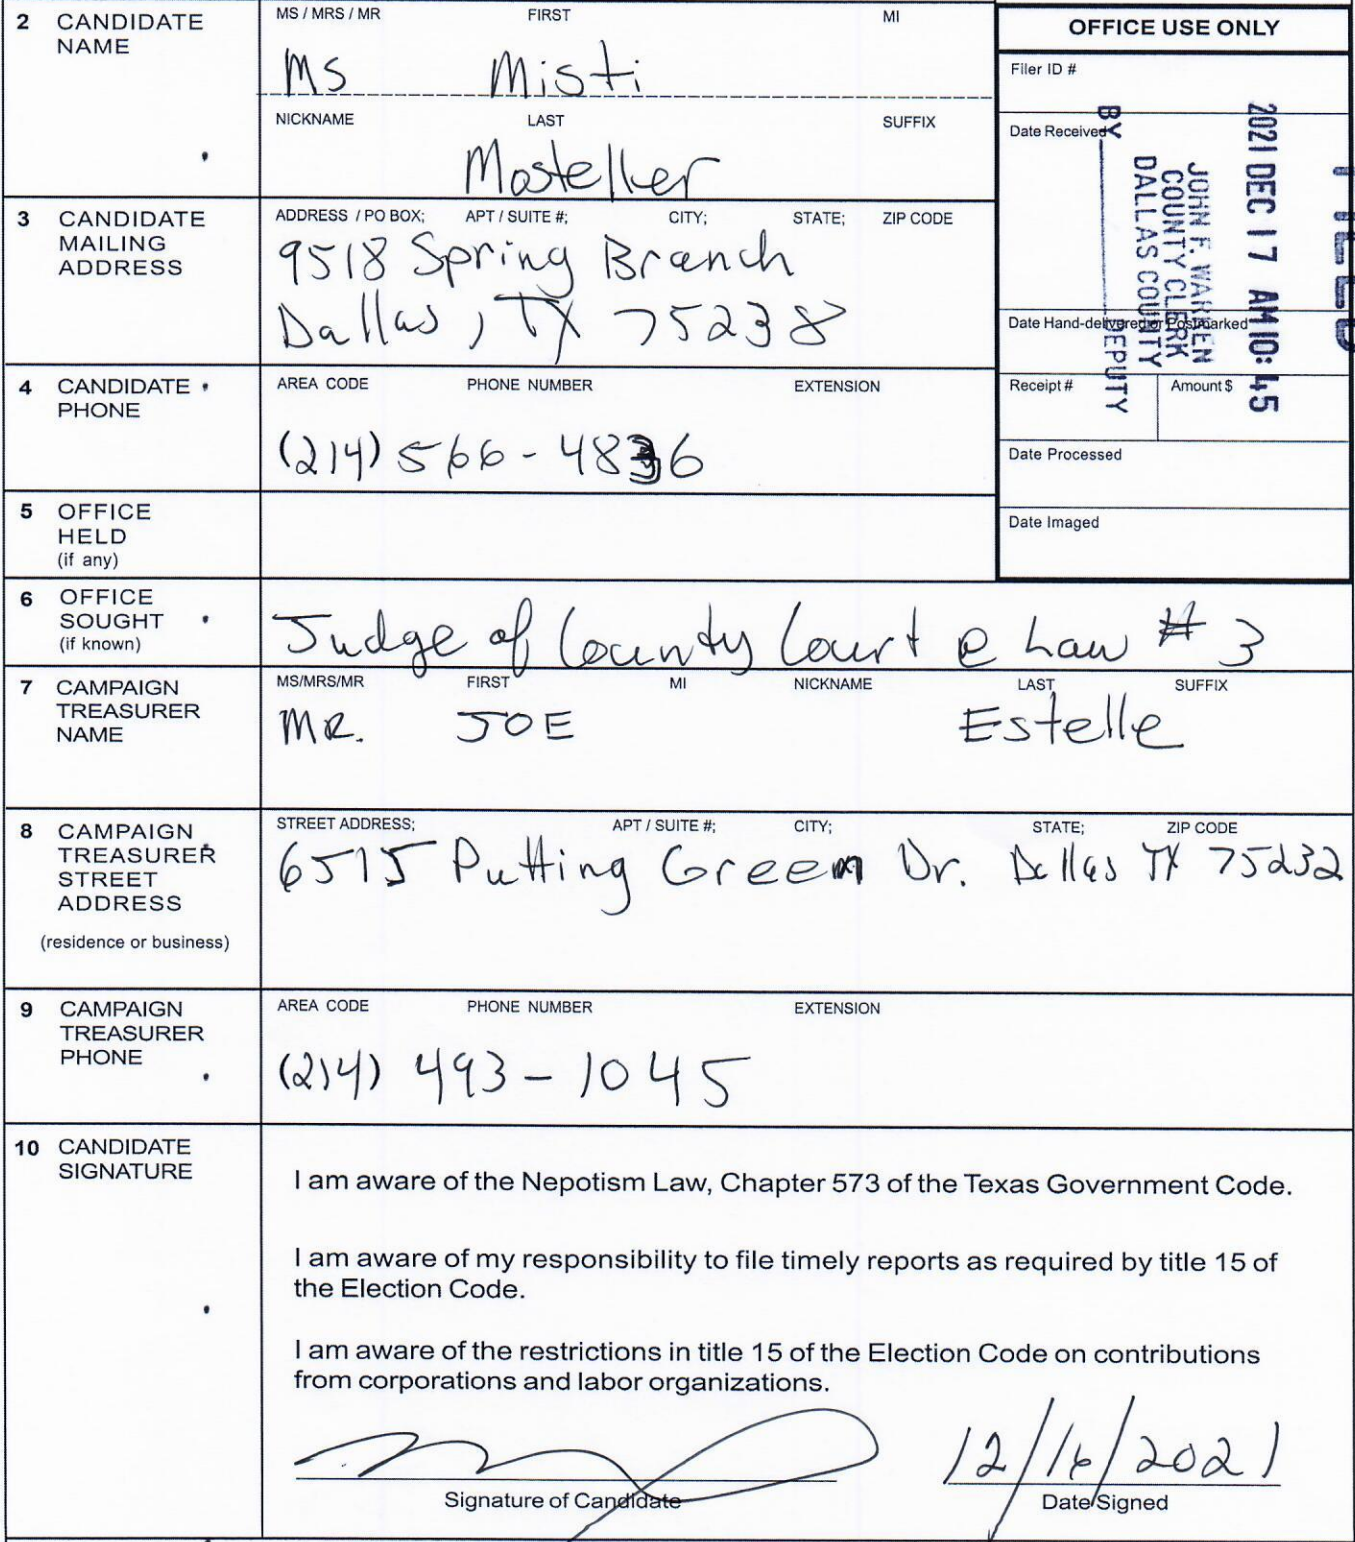 2 CANDIDATE NAME
MS / MRS / MR FIRST MI
Ms Misti
NICKNAME LAST SUFFIX
Mosteller
OFFICE USE ONLY
Filer ID #
Date Received
Date Hand-delivered or Postmarked
Receipt # Amount $
Date Processed
Date Imaged
FILED
2021 DEC 17 AM 10: 45
JOHN F. WARREN
COUNTY CLERK
DALLAS COUNTY
BY DEPUTY
3 CANDIDATE MAILING ADDRESS
ADDRESS / PO BOX; APT / SUITE #; CITY; STATE; ZIP CODE
9518 Spring Branch
Dallas, TX 75238
4 CANDIDATE PHONE
AREA CODE PHONE NUMBER EXTENSION
(214) 566-4836
5 OFFICE HELD
(if any)
6 OFFICE SOUGHT
(if known)
Judge of County Court @ Law # 3
7 CAMPAIGN TREASURER NAME
MS/MRS/MR FIRST MI NICKNAME LAST SUFFIX
MR. JOE Estelle
8 CAMPAIGN TREASURER STREET ADDRESS
(residence or business)
STREET ADDRESS; APT / SUITE #; CITY; STATE; ZIP CODE
6515 Putting Green Dr. Dallas TX 75232
9 CAMPAIGN TREASURER PHONE
AREA CODE PHONE NUMBER EXTENSION
(214) 493-1045
10 CANDIDATE SIGNATURE
I am aware of the Nepotism Law, Chapter 573 of the Texas Government Code.
I am aware of my responsibility to file timely reports as required by title 15 of
the Election Code.
I am aware of the restrictions in title 15 of the Election Code on contributions
from corporations and labor organizations.
12/16/2021
Signature of Candidate Date Signed